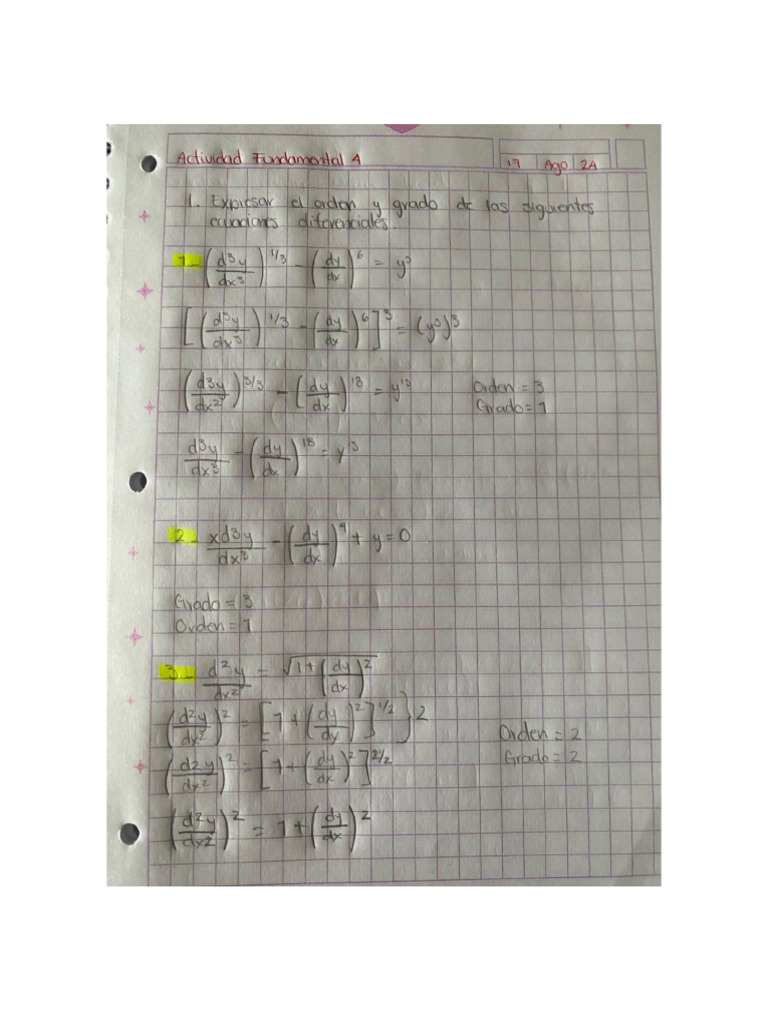 Actividad Fundamental 4
17 Ago 24
1. Expresar el orden y grado de las siguientes
ecuaciones diferenciales.
1- (d³y/dx³)^1/3 - (dy/dx)^6 = y⁵
[(d³y/dx³)^1/3 - (dy/dx)^6]³ = (y⁵)³
(d3y/dx²)^3/3 - (dy/dx)^18 = y^15
Orden = 3
Grado = 1
d³y/dx³ - (dy/dx)^18 = y^15
2- xd3y/dx³ - (dy/dx)^4 + y = 0
Grado = 3
Orden = 1
3- d²y/dx² = √1+(dy/dx)²
(d2y/dx²)² = [1+(dy/dx)²]^1/2}2
Orden = 2
Grado = 2
(d2y/dx²)² = [1+(dy/dx)²]^2/2
(d²y/dx2)² = 1+(dy/dx)²